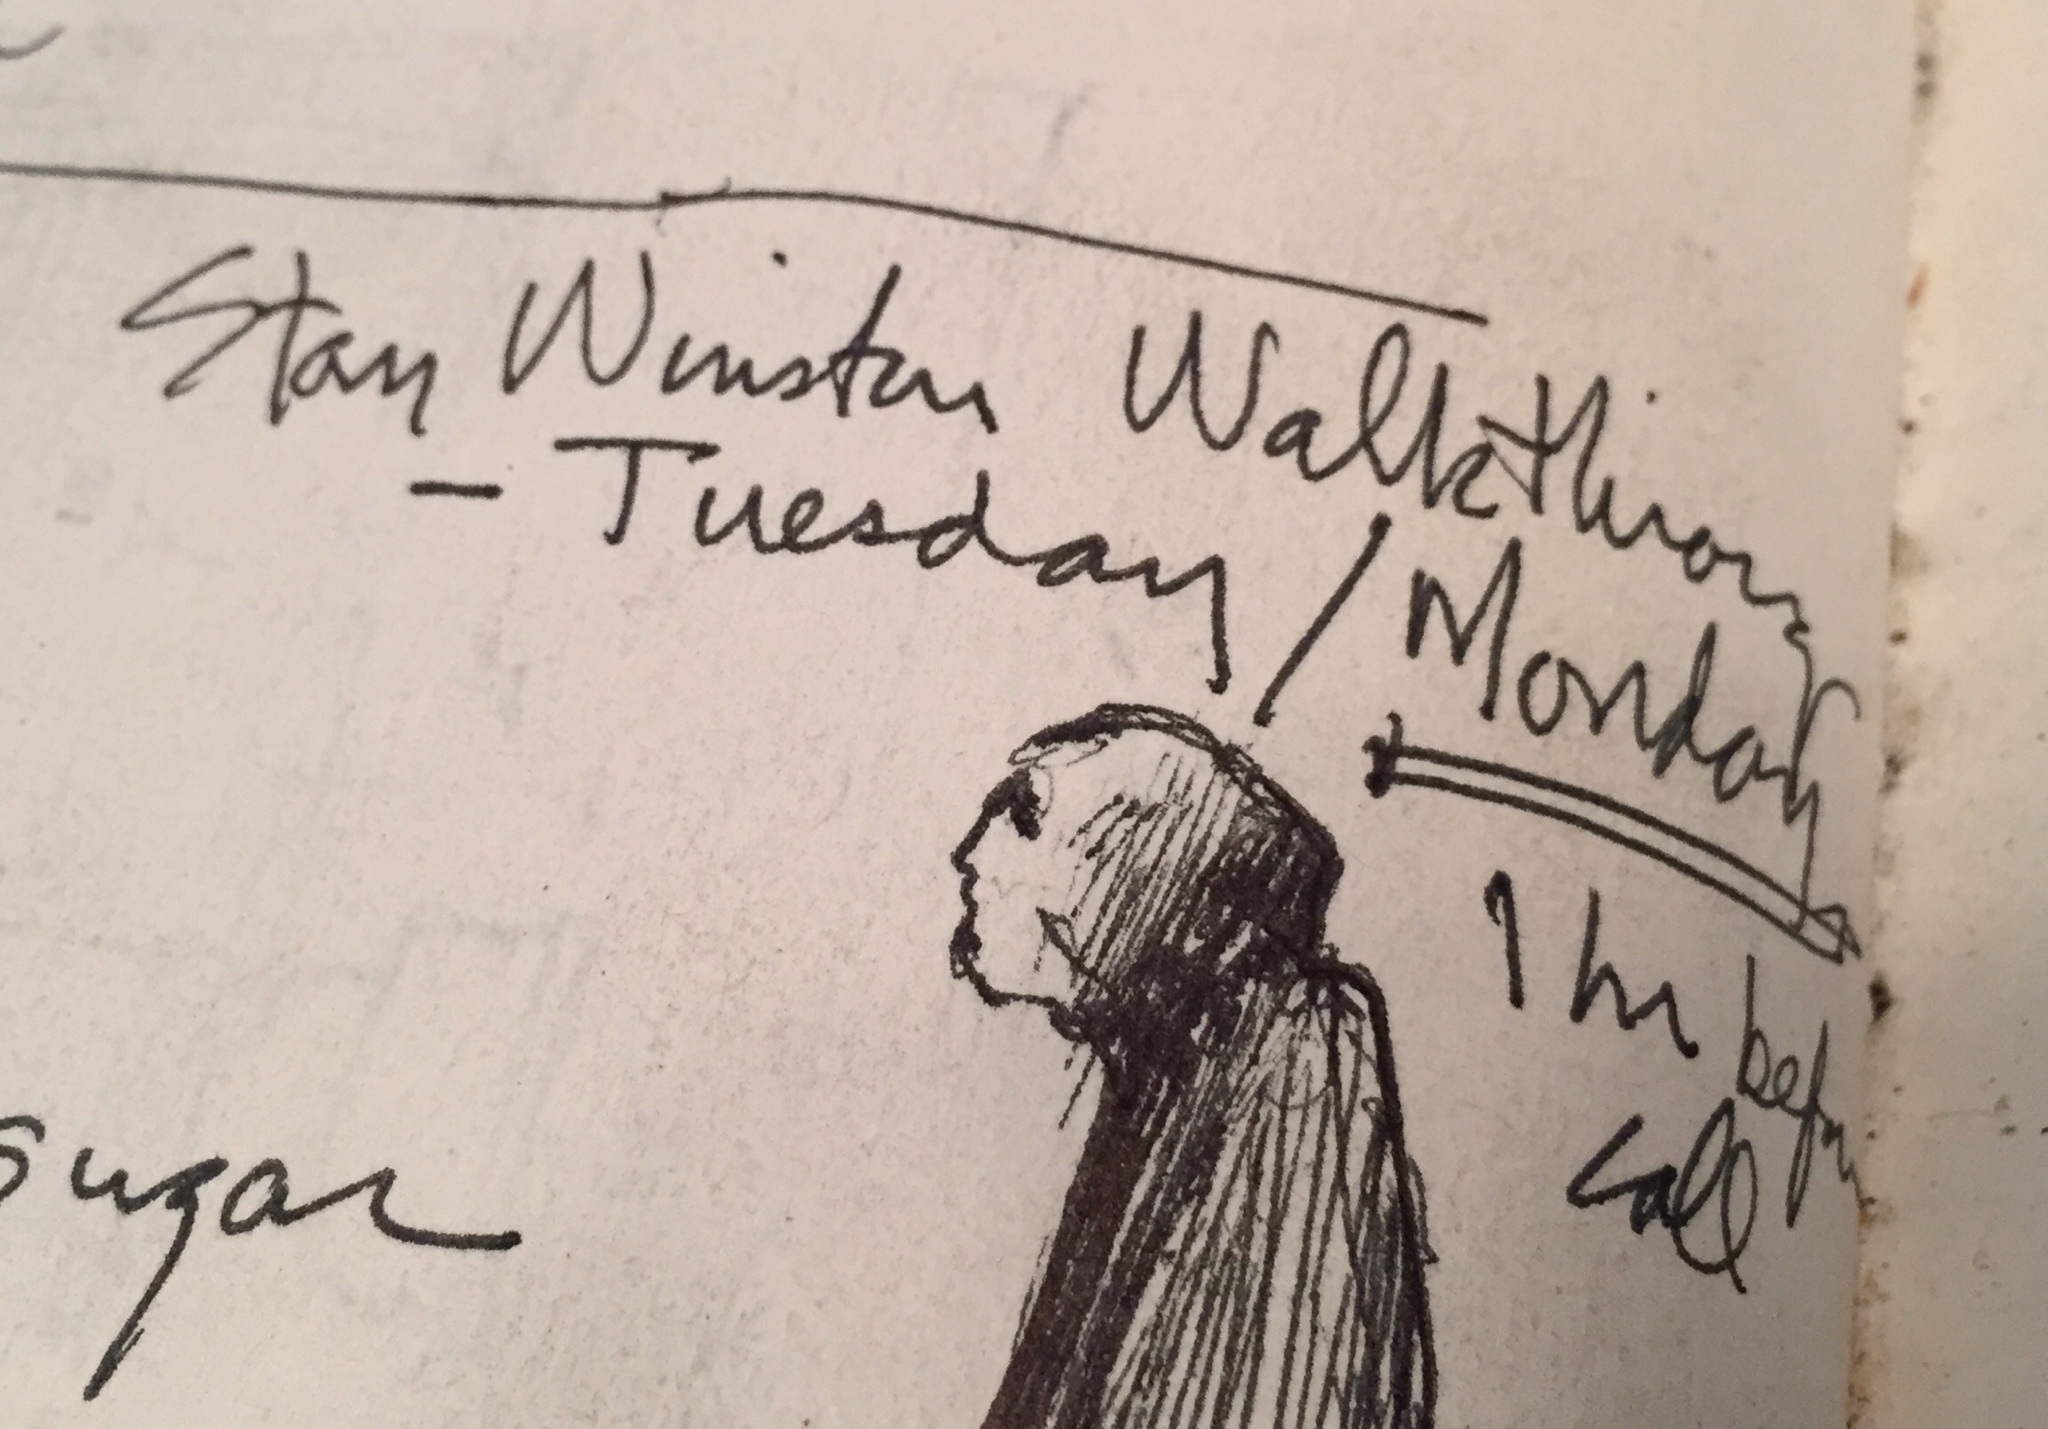 Stan Winston Walkthroug
- Tuesday / Monday
1 hr befor
call
sugar